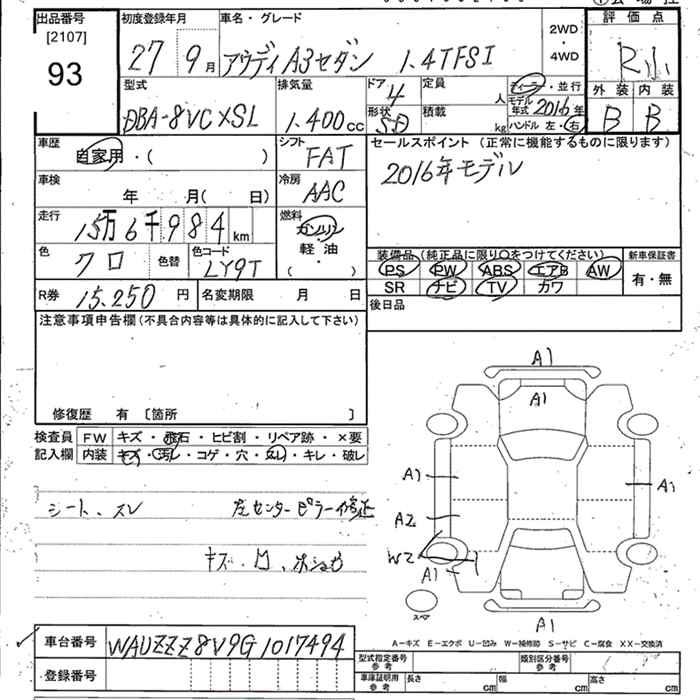 出品番号 初度登録年月 車名・グレード 評価点
[2107] 93 27 9月 アウディA3セダン 1.4TFSI 2WD・4WD R小
型式 排気量 ドア 4 定員 人 ディーラー・並行 外装 内装
DBA-8VCXSL 1.400cc 形状 SD 積載 kg モデル年式 2016年 ハンドル 左・右 B B
車歴 自家用・( ) シフト FAT セールスポイント (正常に機能するものに限ります)
車検 年 月( 日) 冷房 AAC 2016年モデル
走行 15万6千984km 燃料 ガソリン 軽・油 ・( )
色 クロ 色替 色コード LY9T 装備品(純正品に限り○をつけてください) 新車保証書
PS PW ABS エアB AW 有・無
SR ナビ TV カワ
R券 15.250円 名変期限 月 日 後日品
注意事項申告欄(不具合内容等は具体的に記入して下さい)
修復歴 有 〔箇所 〕
検査員 FW キズ・飛石・ヒビ割・リペア跡・×要
記入欄 内装 キズ・汚レ・コゲ・穴・スレ・キレ・破レ
シート、スレ 左センターピラー修正
キズ・凹、ホショウ
A1
A1
A1 A1
A2
W2
A1
スペア A1
A-キズ E-エクボ U-凹み W-補修跡 S-サビ C-腐食 XX-交換済
車台番号 WAUZZZ8V9G1017494 型式指定番号 参考 類別区分番号 参考
登録番号 車庫証明用 参考 長さ cm 幅 cm 高さ cm